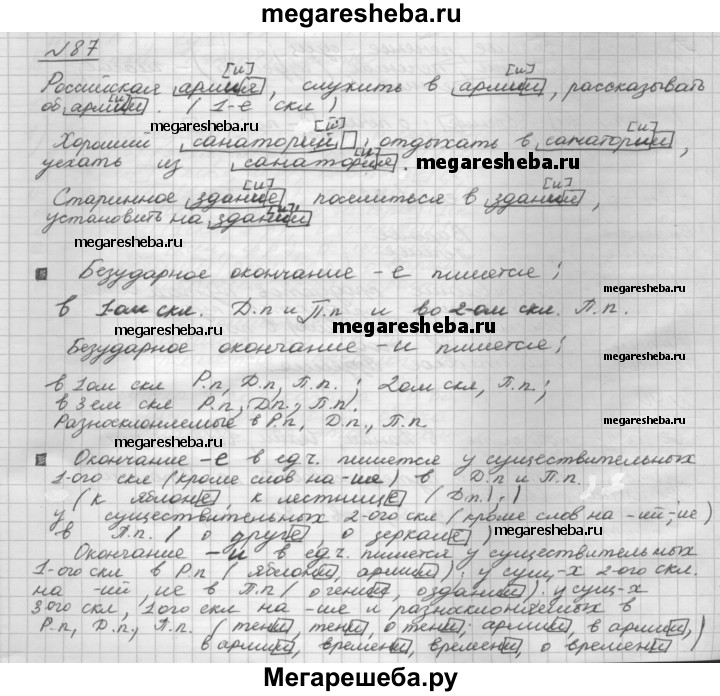 megaresheba.ru
№87
[и]
[и]
Российская армия, служить в армии, рассказывать
[и]
об армии. (1-е скл)
[й]
[и]
Хороший санаторий, отдыхать в санатории,
megaresheba.ru
[и]
megaresheba.ru
уехать из санатория.
[и]
[и]
Старинное здание, поселиться в здании,
[и]
установить на здании
megaresheba.ru
megaresheba.ru
Безударное окончание -е пишется;
в 1-ом скл. Д.п и П.п и во 2-ом скл. П.п.
megaresheba.ru
megaresheba.ru
Безударное окончание -и пишется;
megaresheba.ru
в 1ом скл Р.п, Д.п, П.п.; 2ом скл, П.п;
в 3ем скл Р.п, Д.п., П.п.
Разносклоняемые в Р.п, Д.п., П.п.
megaresheba.ru
megaresheba.ru
Окончание -е в ед.ч. пишется у существительных
1-ого скл (кроме слов на -ия) в Д.п и П.п.
(к яблоне, к лестнице (Д.п),)
megaresheba.ru
у существительных 2-ого скл (кроме слов на -ий; ие)
в П.п. (о друге, о зеркале)
Окончание -и в ед.ч. пишется у существительных
1-ого скл в Р.п (яблони, армии); у сущ-х 2-ого скл.
megaresheba.ru
на -ий, ие в П.п ( ); у сущ-х
3-ого скл, 1ого скл на -ия и разносклоняемых в
Р.п, Д.п., П.п. (тени, тени, о тени; армии, в армии,)
megaresheba.ru
в армии, времени, времени, о времени
Мегарешеба.ру